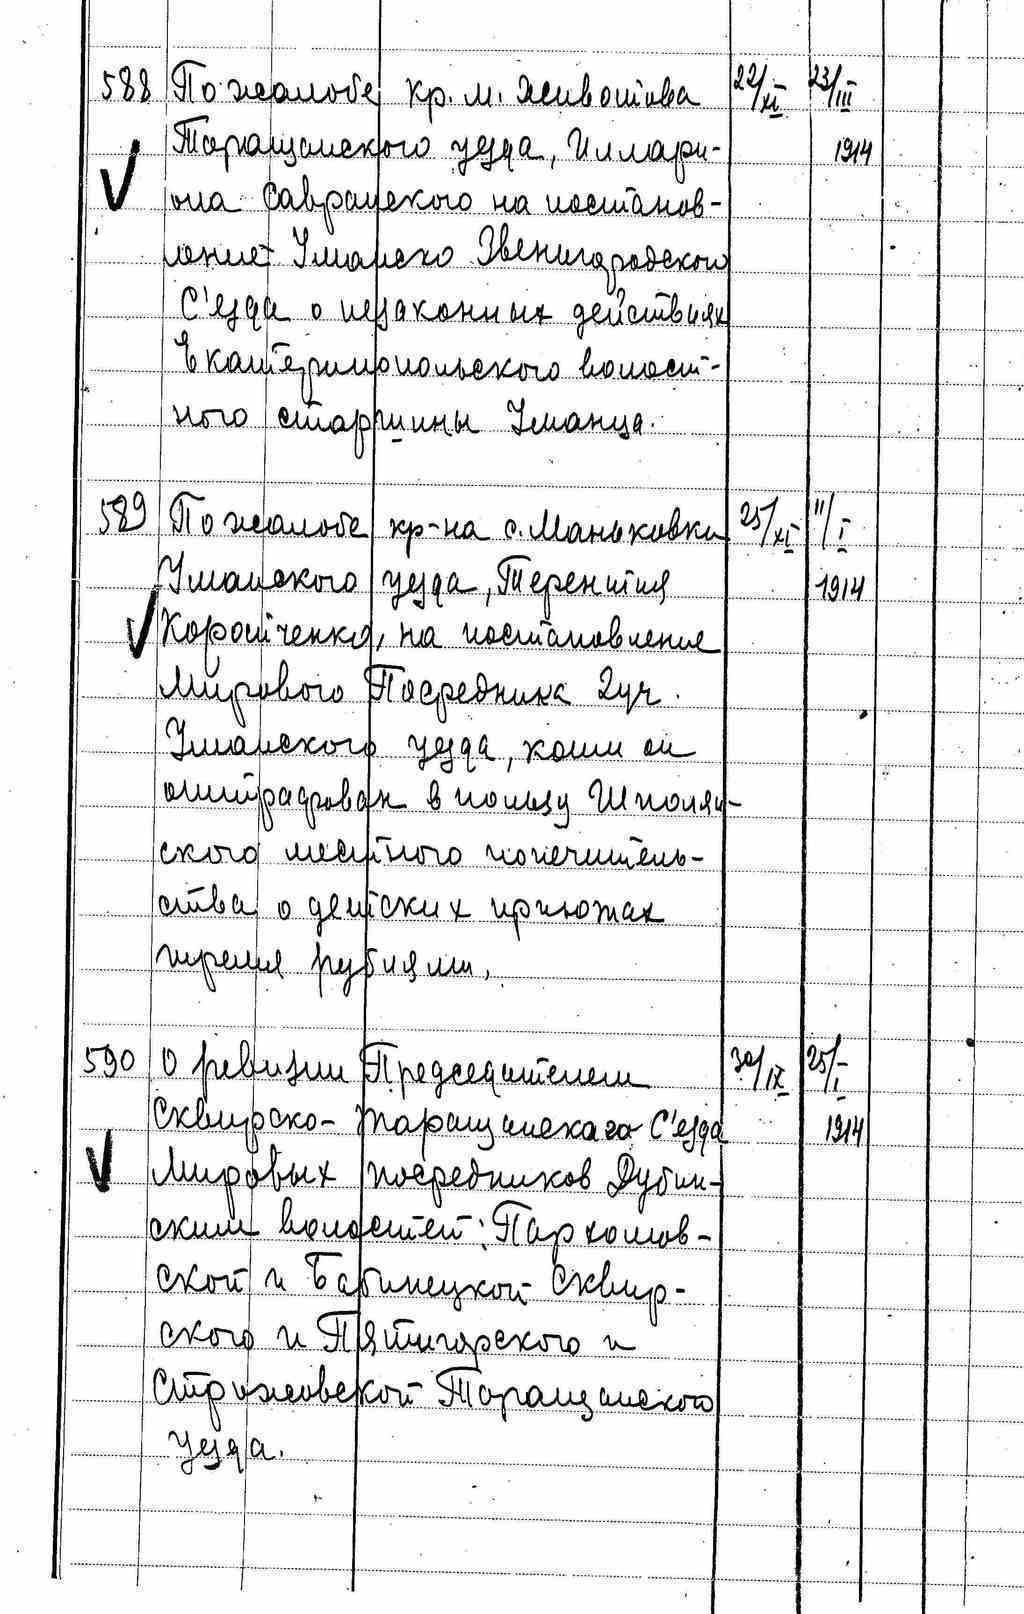 588 По жалобе кр. м. Животова 22/XI 23/III
Таращанского уезда, Иллари- 1914
она Савранского на постанов-
ление Уманско Звенигородского
С'езда о незаконных действиях
Екатеринопольского волост-
ного старшины Уманца.
589 По жалобе кр-на с. Маньковки 25/XI 11/I
Уманского уезда, Терентия 1914
Коротченко, на постановление
Мирового Посредника 2 уч.
Уманского уезда, коим он
оштрафован в пользу Шполян-
ского местного попечитель-
ства о детских приютах
тремя рублями.
590 О ревизии Председателем 30/IX 25/I
Сквирско-Таращанскаго С'езда 1914
Мировых посредников Дубин-
ским волостей: Пархомов-
ской и Бабинецкой Сквир-
ского и Пятигорского и
Стрижовской Таращанского
уезда.